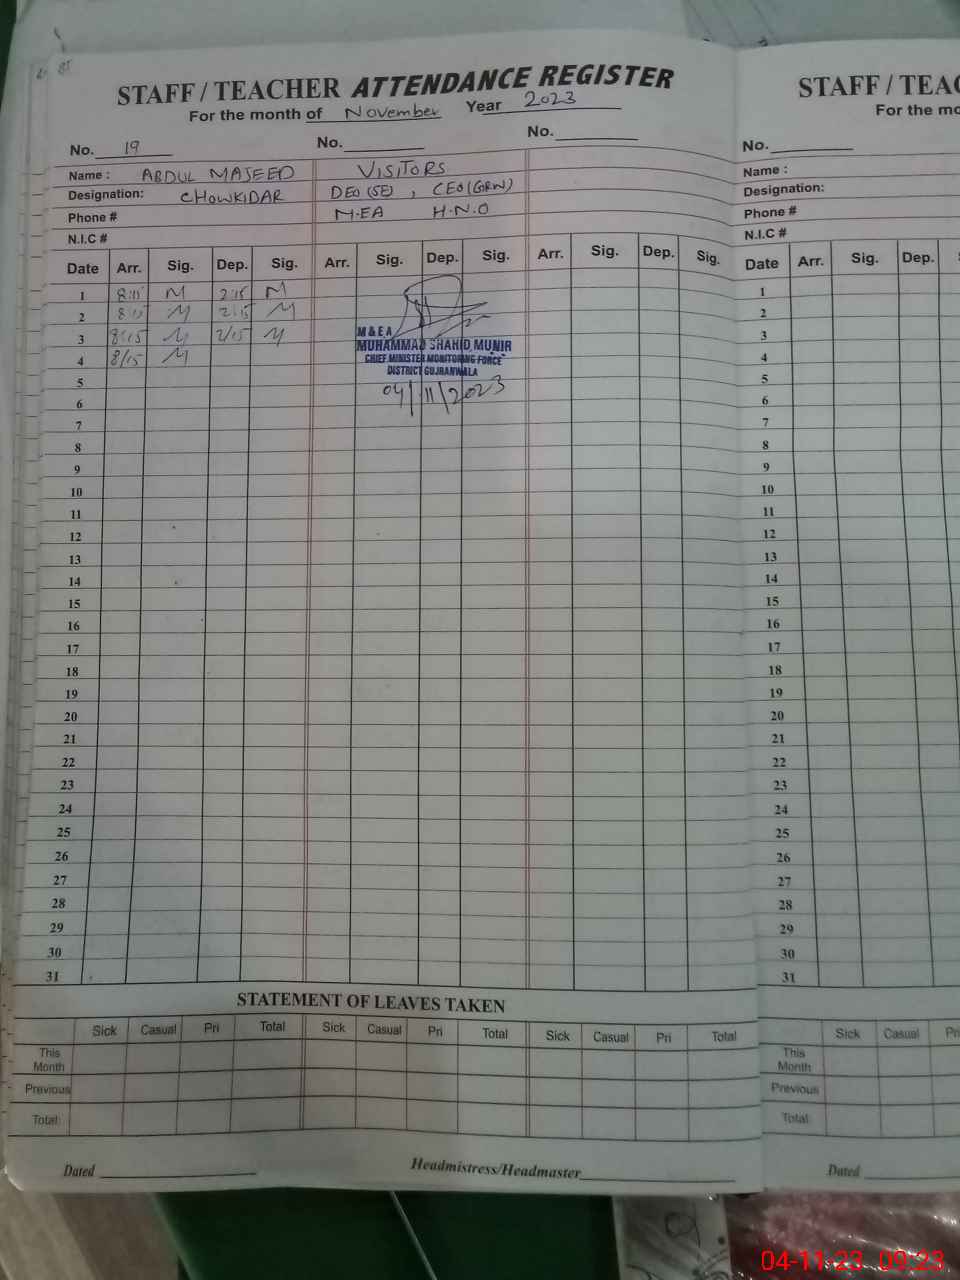 85
STAFF / TEACHER ATTENDANCE REGISTER
For the month of November Year 2023
No. 19 No. No.
Name : ABDUL MAJEED VISITORS
Designation: CHOWKIDAR DEO (SE) , CEO (GRW)
Phone # M.EA H.N.O
N.I.C #
Date Arr. Sig. Dep. Sig. Arr. Sig. Dep. Sig. Arr. Sig. Dep. Sig.
1 8:15 M 2:15 M
2 8/15 M 2/15 M
3 8/15 M 2/15 M
4 8/15 M
M & E A
MUHAMMAD SHAHID MUNIR
CHIEF MINISTER MONITORING FORCE
DISTRICT GUJRANWALA
04/11/2023
5
6
7
8
9
10
11
12
13
14
15
16
17
18
19
20
21
22
23
24
25
26
27
28
29
30
31
STATEMENT OF LEAVES TAKEN
Sick Casual Pri Total Sick Casual Pri Total Sick Casual Pri Total
This
Month
Previous
Total:
Dated Headmistress/Headmaster
STAFF / TEAC
For the mo
No.
Name :
Designation:
Phone #
N.I.C #
Date Arr. Sig. Dep.
1
2
3
4
5
6
7
8
9
10
11
12
13
14
15
16
17
18
19
20
21
22
23
24
25
26
27
28
29
30
31
Sick Casual Pri
This
Month
Previous
Total:
Dated
04-11-23 09:23